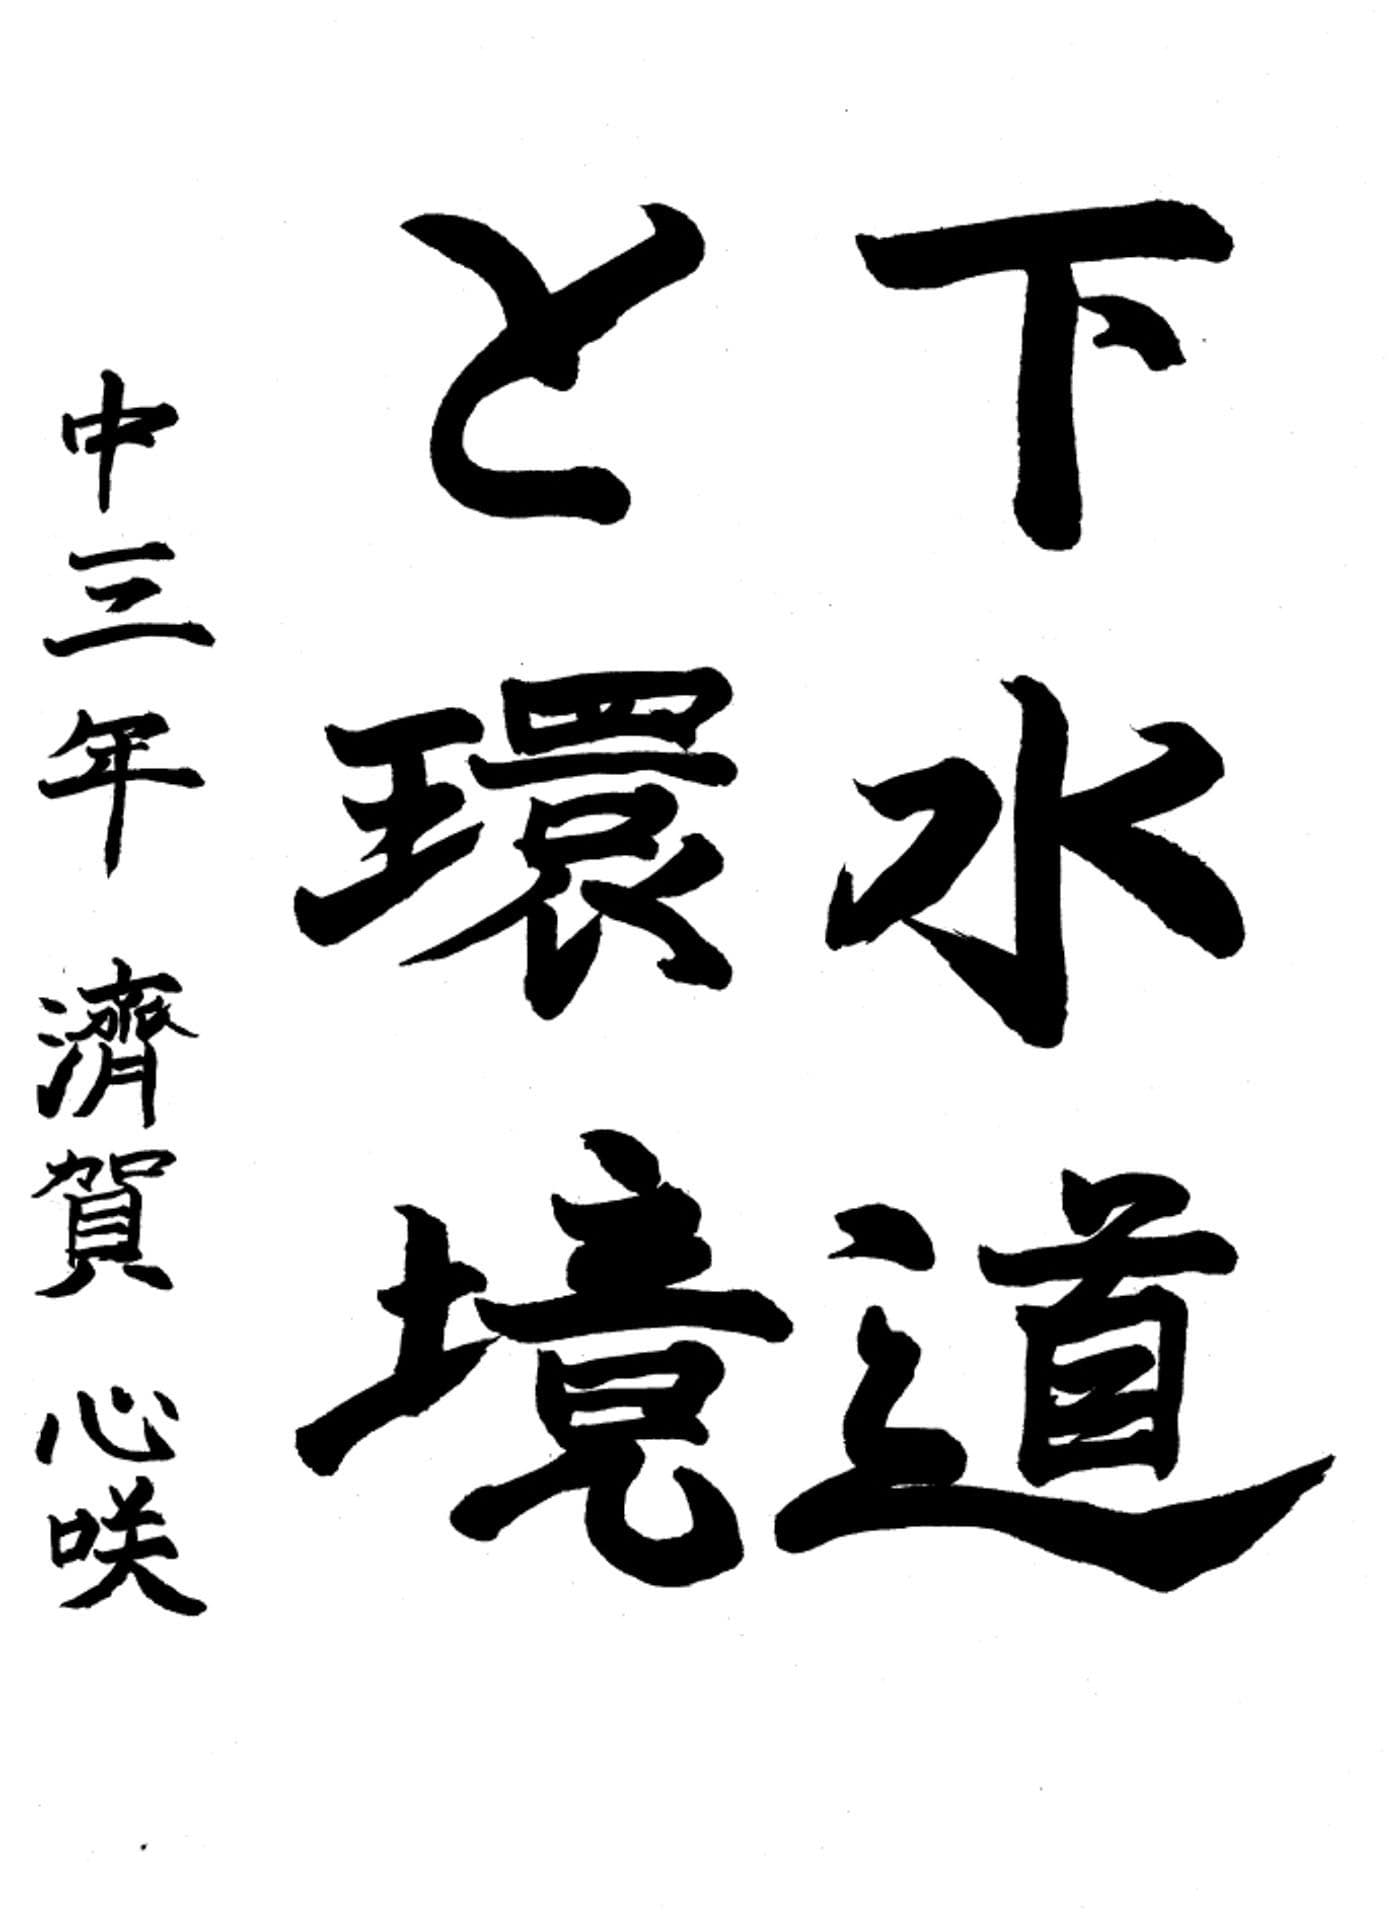 下水道
と環境
中三年 濟賀 心咲